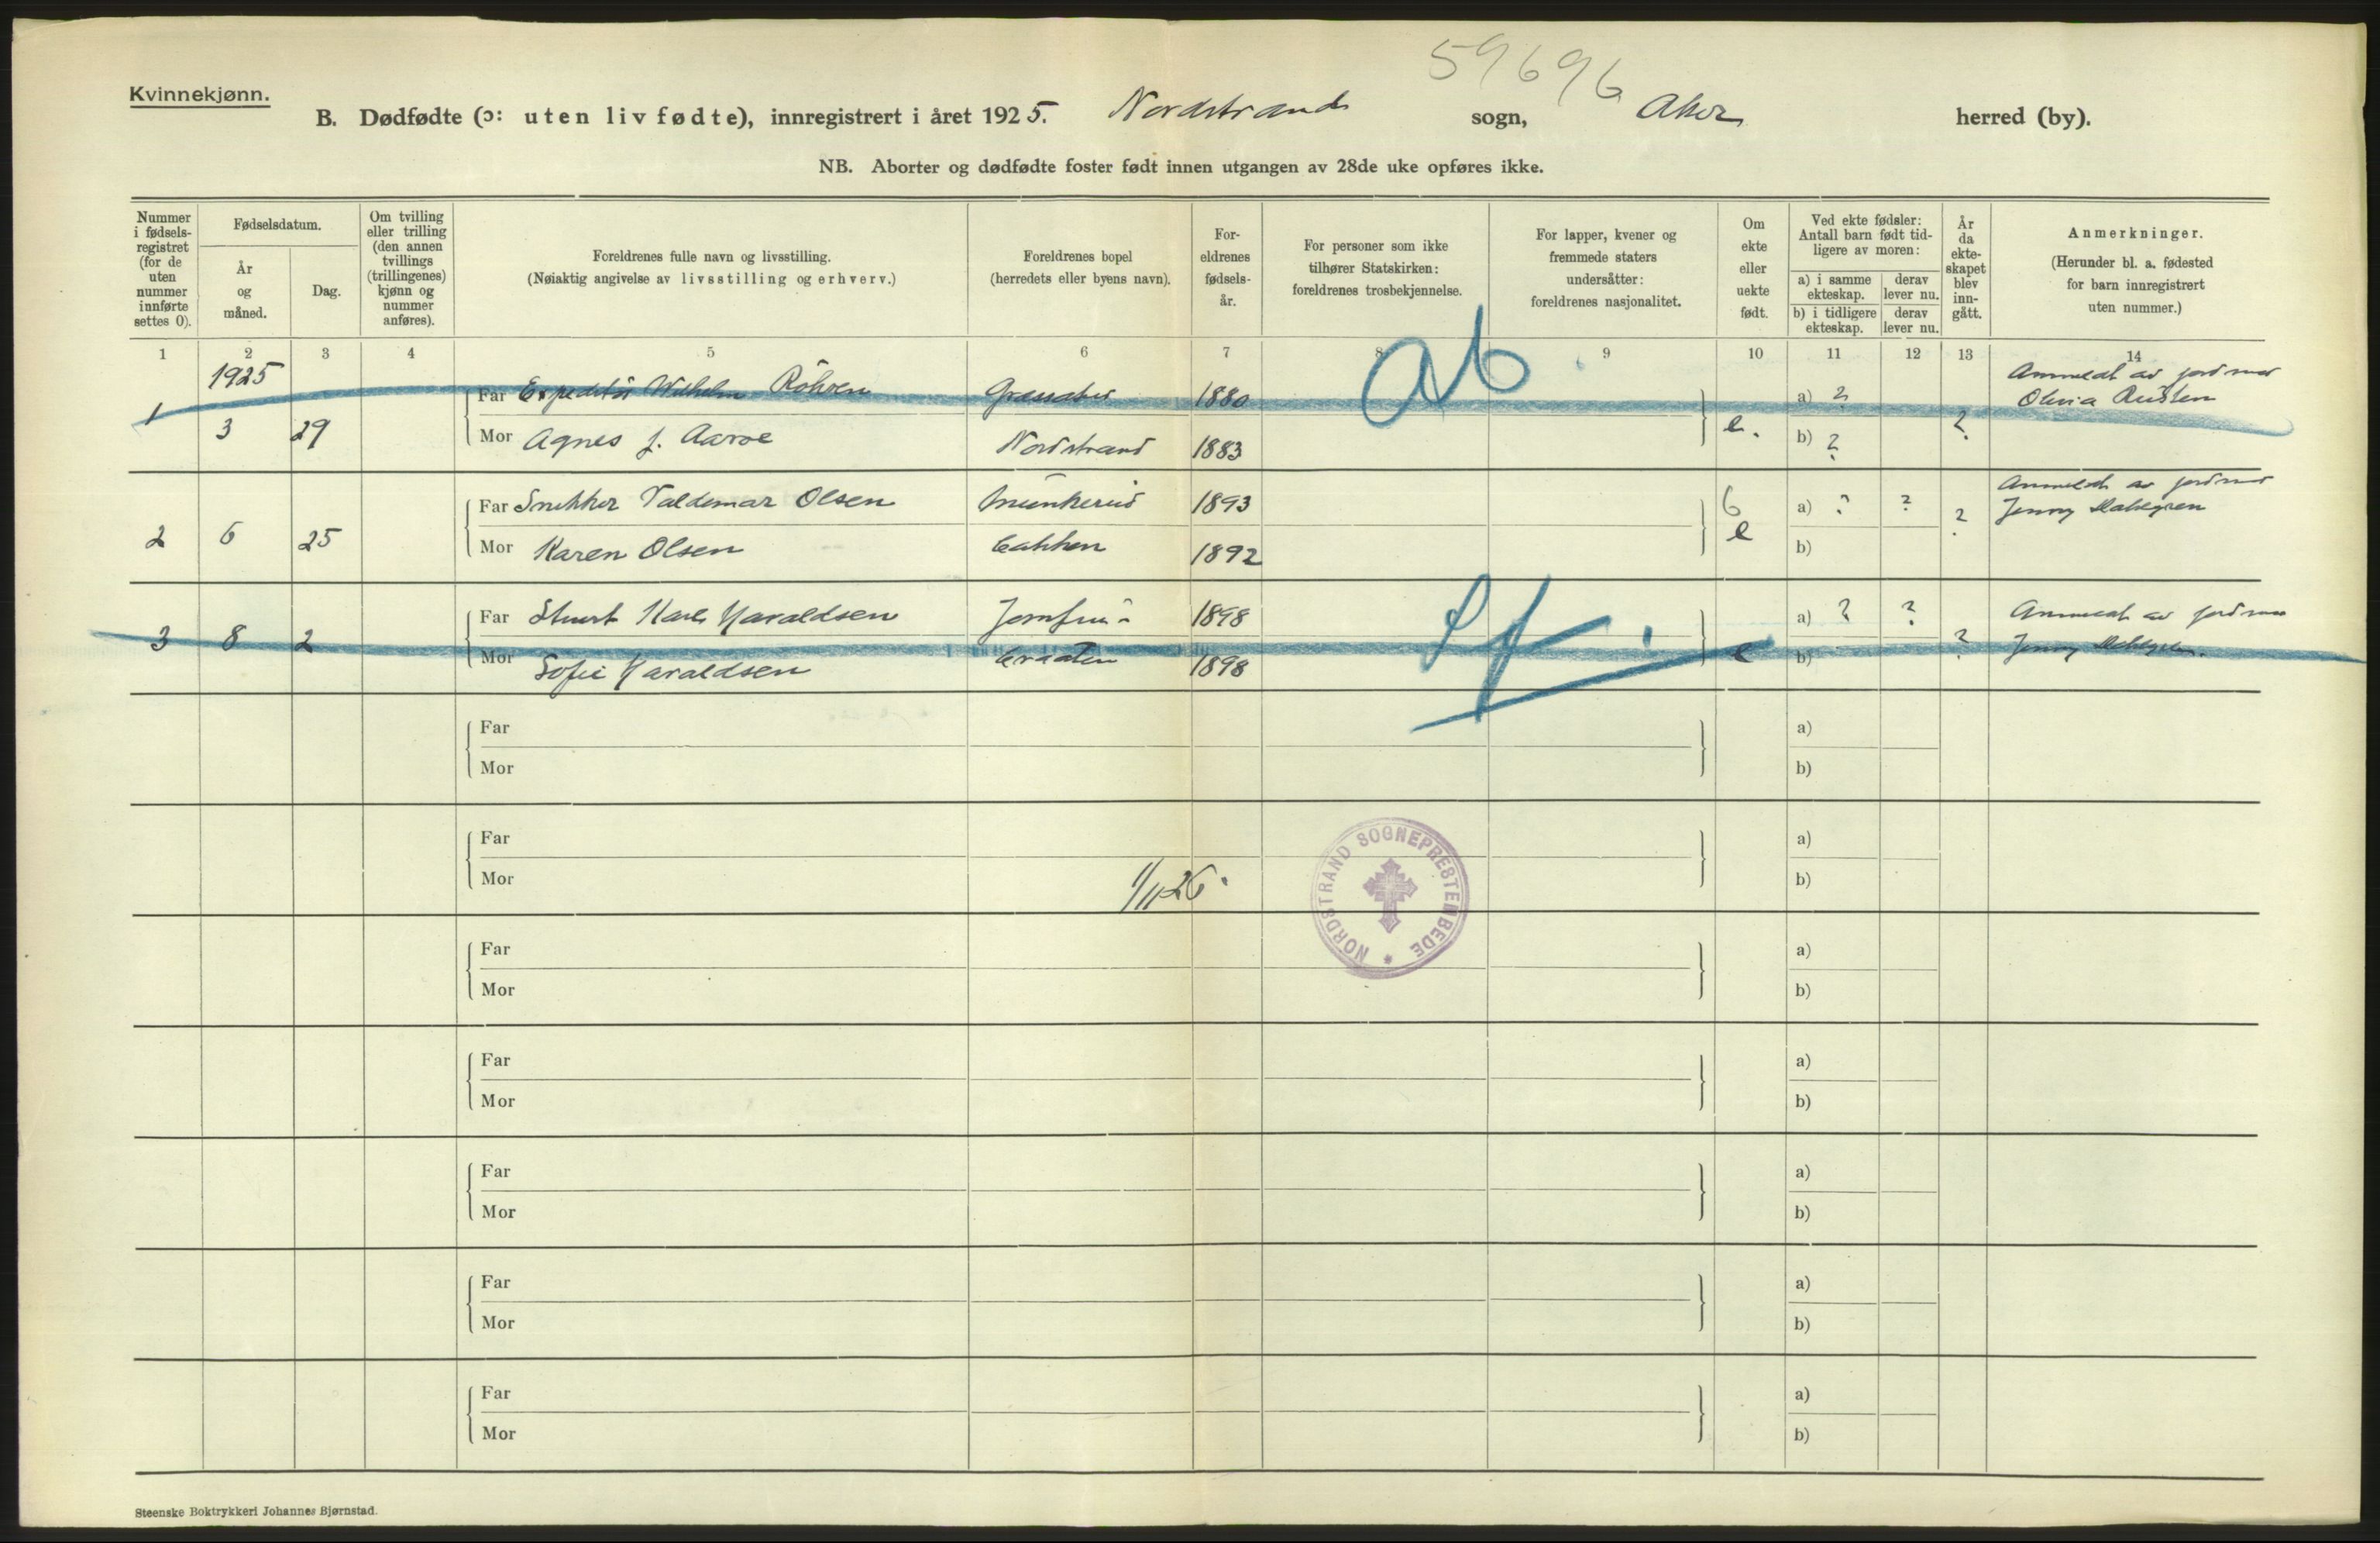 59696
Kvinnekjønn.
B. Dødfødte (ɔ: uten liv fødte), innregistrert i året 1925. Nordstrand sogn, Aker herred (by).
NB. Aborter og dødfødte foster født innen utgangen av 28de uke opføres ikke.
Nummer i fødsels-registret (for de uten nummer innførte settes 0).
Fødselsdatum.
År og måned.
Dag.
Om tvilling eller trilling (den annen tvillings (trillingenes) kjønn og nummer anføres).
Foreldrenes fulle navn og livsstilling.
(Nøiaktig angivelse av livsstilling og erhverv.)
Foreldrenes bopel
(herredets eller byens navn).
For-eldrenes fødsels-år.
For personer som ikke tilhører Statskirken: foreldrenes trosbekjennelse.
For lapper, kvener og fremmede staters undersåtter: foreldrenes nasjonalitet.
Om ekte eller uekte født.
Ved ekte fødsler: Antall barn født tid-ligere av moren:
a) i samme ekteskap.
derav lever nu.
b) i tidligere ekteskap.
derav lever nu.
År da ekte-skapet blev inn-gått.
Anmerkninger.
(Herunder bl. a. fødested for barn innregistrert uten nummer.)
1 2 3 4 5 6 7 8 9 10 11 12 13 14
1925
Ab
1 3 29
Far Expeditør Wilhelm Röhren 1880 a) ? Anmeldt av jordmor
Olivia Rusten
Mor Agnes J. Aaroe Nordstrand 1883 e. b) ? ?
2 6 25
Far Snekker Valdemar Olsen Munkerud 1893 6 a) ? ? ? Anmeldt av jordmor
Jenny
Mor Karen Olsen 1892 e b)
3 8 2
Far Karl Haraldsen Jomfru- 1898 a) ? ? ? Anmeldt av jordmor
Jenny
Mor Sofie Haraldsen Braaten 1898 e b)
Far a)
Mor b)
Far a)
Mor b)
1/11-26.
NORDSTRAND SOGNEPRESTEMBEDE
Far a)
Mor b)
Far a)
Mor b)
Far a)
Mor b)
Far a)
Mor b)
Far a)
Mor b)
Steenske Boktrykkeri Johannes Bjørnstad.